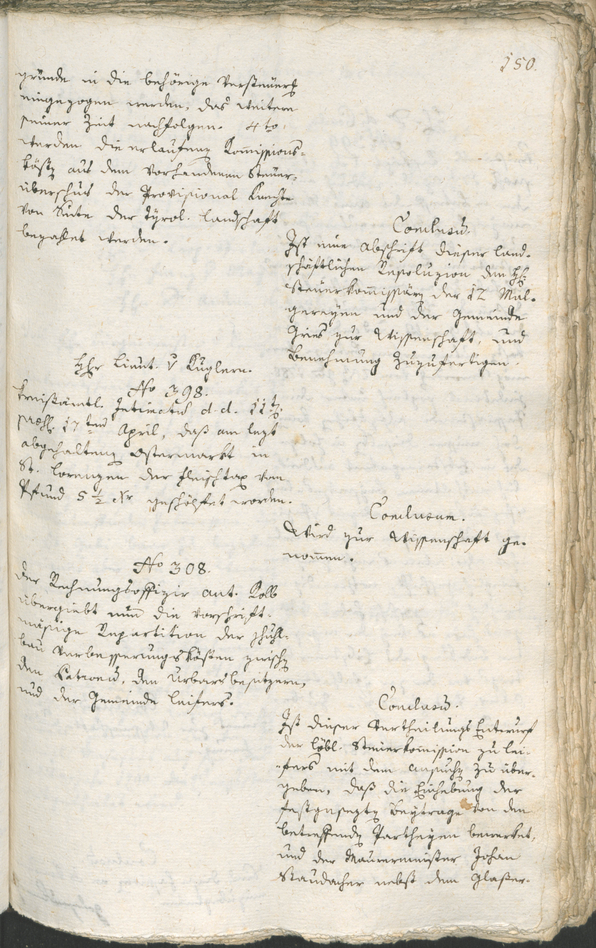 150.
gründe in die behörige Versteuerg
eingezogen werden, das weitere
seiner Zeit nachfolgen. 4to.
werden die erlaufenen Kommissions-
kösten aus dem vorhandenen Steuer-
überschuß der Provisional Cuschte
von Seite der tÿrol. Landschaft
bezahlet werden.
Conclusum.
Ist eine Abschrift dieser land-
schäftlichen Resoluzion den HH.
Steuerkommissarien der 12 Mal-
greyen und der Gemeinde
Gries zur Wissenschaft, und
Benehmung zuzufertigen.
Hr. Lieut. v Küglern.
No 298.
Kreisämtl. Intimatum d.d. 11t
praes. 17ten April, daß am lezt
abgehaltenen Ostermarkt in
St. Lorenzen der Fleischtax von
Pfund 5 ½ Xr geschöpfet worden.
Conclusum.
Wird zur Wissenschaft ge-
nommen.
No 308.
Der Rechnungsoffizir ant. Kolb
übergiebt nun die vorschrift-
mäsige Repartition der
bau Verbesserungskösten zwischen
den den Urbarsbesitzern,
und der Gemeinde Leifers.
Conclusum.
Ist dieser Vertheilungs Entwurf
der löbl. Steuerkomission zu Lei-
fers mit dem Ansuchen zu über-
geben, daß die Einhebung der
festgesezten Beyträge von den
betreffenden Partheyen bewerket,
und der Maurermeister Johan
Staudacher nebst dem Glaser-